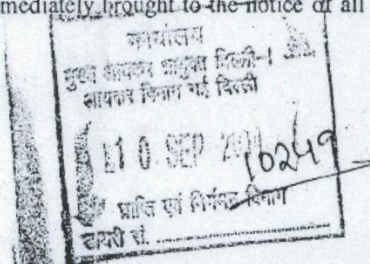 mediately brought to the notice of all
कार्यालय
मुख्य आयकर आयुक्त दिल्ली-I
आयकर विभाग नई दिल्ली
10 SEP
10249
प्राप्ति एवं निर्गमन विभाग
डायरी सं.